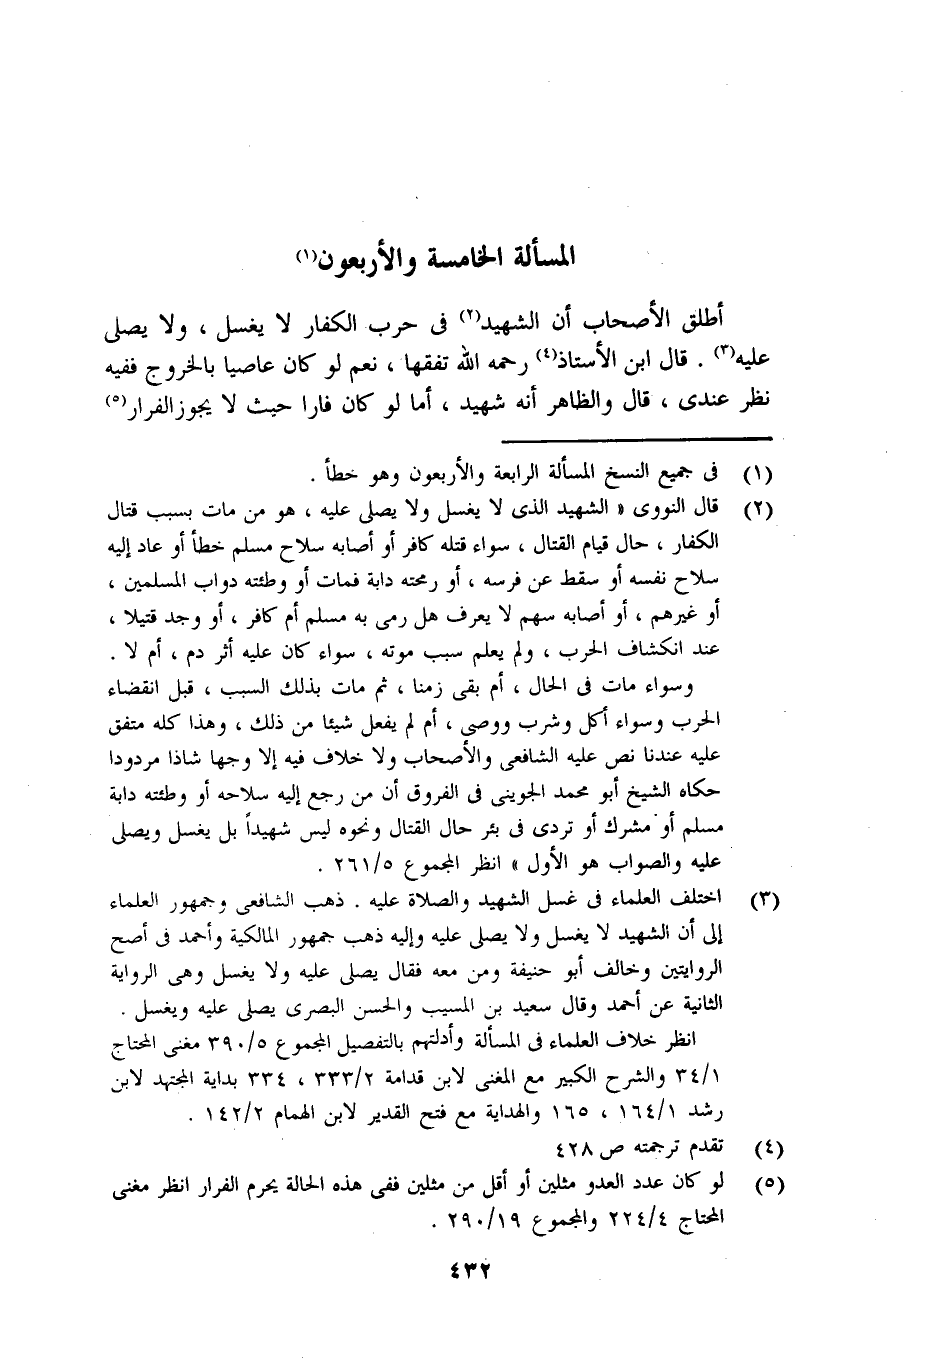 المسألة الخامسة والأربعون(١)
أطلق الأصحاب أن الشهيد(٢) فى حرب الكفار لا يغسل ، ولا يصلى
عليه(٣) . قال ابن الأستاذ(٤) رحمه الله تفقها ، نعم لو كان عاصيا بالخروج ففيه
نظر عندى ، قال والظاهر أنه شهيد ، أما لو كان فارا حيث لا يجوز الفرار(٥)
(١) فى جميع النسخ المسألة الرابعة والأربعون وهو خطأ .
(٢) قال النووى « الشهيد الذى لا يغسل ولا يصلى عليه ، هو من مات بسبب قتال
الكفار ، حال قيام القتال ، سواء قتله كافر أو أصابه سلاح مسلم خطأ أو عاد إليه
سلاح نفسه أو سقط عن فرسه ، أو رمحته دابة فمات أو وطئته دواب المسلمين ،
أو غيرهم ، أو أصابه سهم لا يعرف هل رمى به مسلم أم كافر ، أو وجد قتيلا ،
عند انكشاف الحرب ، ولم يعلم سبب موته ، سواء كان عليه أثر دم ، أم لا .
وسواء مات فى الحال ، أم بقى زمنا ، ثم مات بذلك السبب ، قبل انقضاء
الحرب وسواء أكل وشرب ووصى ، أم لم يفعل شيئا من ذلك ، وهذا كله متفق
عليه عندنا نص عليه الشافعى والأصحاب ولا خلاف فيه إلا وجها شاذا مردودا
حكاه الشيخ أبو محمد الجوينى فى الفروق أن من رجع إليه سلاحه أو وطئته دابة
مسلم أو مشرك أو تردى فى بئر حال القتال ونحوه ليس شهيداً بل يغسل ويصلى
عليه والصواب هو الأول » انظر المجموع ٢٦١/٥ .
(٣) اختلف العلماء فى غسل الشهيد والصلاة عليه . ذهب الشافعى وجمهور العلماء
إلى أن الشهيد لا يغسل ولا يصلى عليه وإليه ذهب جمهور المالكية وأحمد فى أصح
الروايتين وخالف أبو حنيفة ومن معه فقال يصلى عليه ولا يغسل وهى الرواية
الثانية عن أحمد وقال سعيد بن المسيب والحسن البصرى يصلى عليه ويغسل .
انظر خلاف العلماء فى المسألة وأدلتهم بالتفصيل المجموع ٣٩٠/٥ مغنى المحتاج
٣٤/١ والشرح الكبير مع المغنى لابن قدامة ٣٣٣/٢ ، ٣٣٤ بداية المجتهد لابن
رشد ١٦٤/١ ، ١٦٥ والهداية مع فتح القدير لابن الهمام ١٤٢/٢ .
(٤) تقدم ترجمته ص ٤٢٨
(٥) لو كان عدد العدو مثلين أو أقل من مثلين ففى هذه الحالة يحرم الفرار انظر مغنى
المحتاج ٢٢٤/٤ والمجموع ٢٩٠/١٩ .
٤٣٢